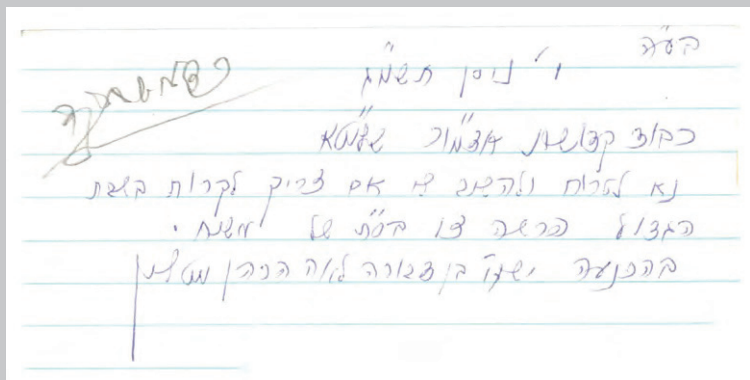 בע"ה
י' ניסן תשמ"ג
כבוד קדושת אדמו"ר שליט"א
נא לטרוח ולהשיב אם צריך לקרות בשבת
הגדול פרשה צו בס"ת של משיח.
בהכנעה ישעי' בן דבורה לאה הכהן